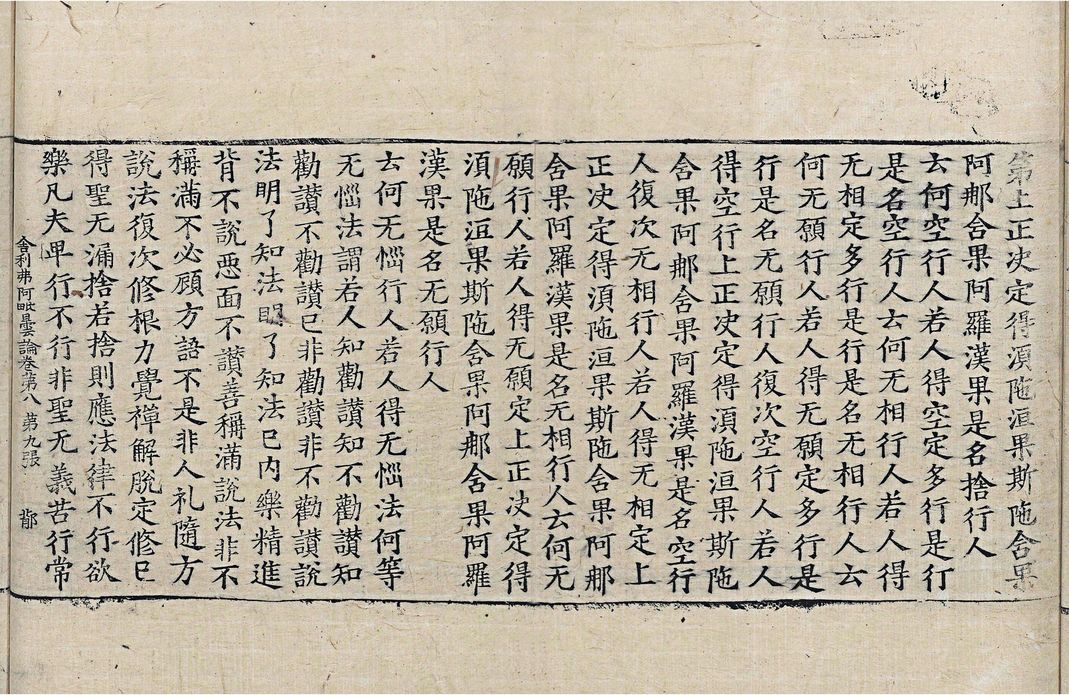 第上正决定得湏陁洹果斯陁含果
阿那含果阿羅漢果是名捨行人
云何空行人若人得空定多行是行
是名空行人云何无相行人若人得
无相定多行是行是名无相行人云
何无願行人若人得无願定多行是
行是名无願行人復次空行人若人
得空行上正决定得湏陁洹果斯陁
含果阿那含果阿羅漢果是名空行
人復次无相行人若人得无相定上
正决定得湏陁洹果斯陁含果阿那
含果阿羅漢果是名无相行人云何无
願行人若人得无願定上正决定得
湏陁洹果斯陁含果阿那含果阿羅
漢果是名无願行人
云何无惱行人若人得无惱法何等
无惱法謂若人知勸讃知不勸讃知
勸讃不勸讃已非勸讃非不勸讃說
法明了知法明了知法已内樂精進
背不說惡面不讃善稱滿說法非不
稱滿不必顧方語不是非人礼隨方
說法復次修根力覺禪解脫定修已
得聖无漏捨若捨則應法緯不行欲
樂凡夫卑行不行非聖无義苦行常
舍利弗阿毗曇論卷第八 第九張